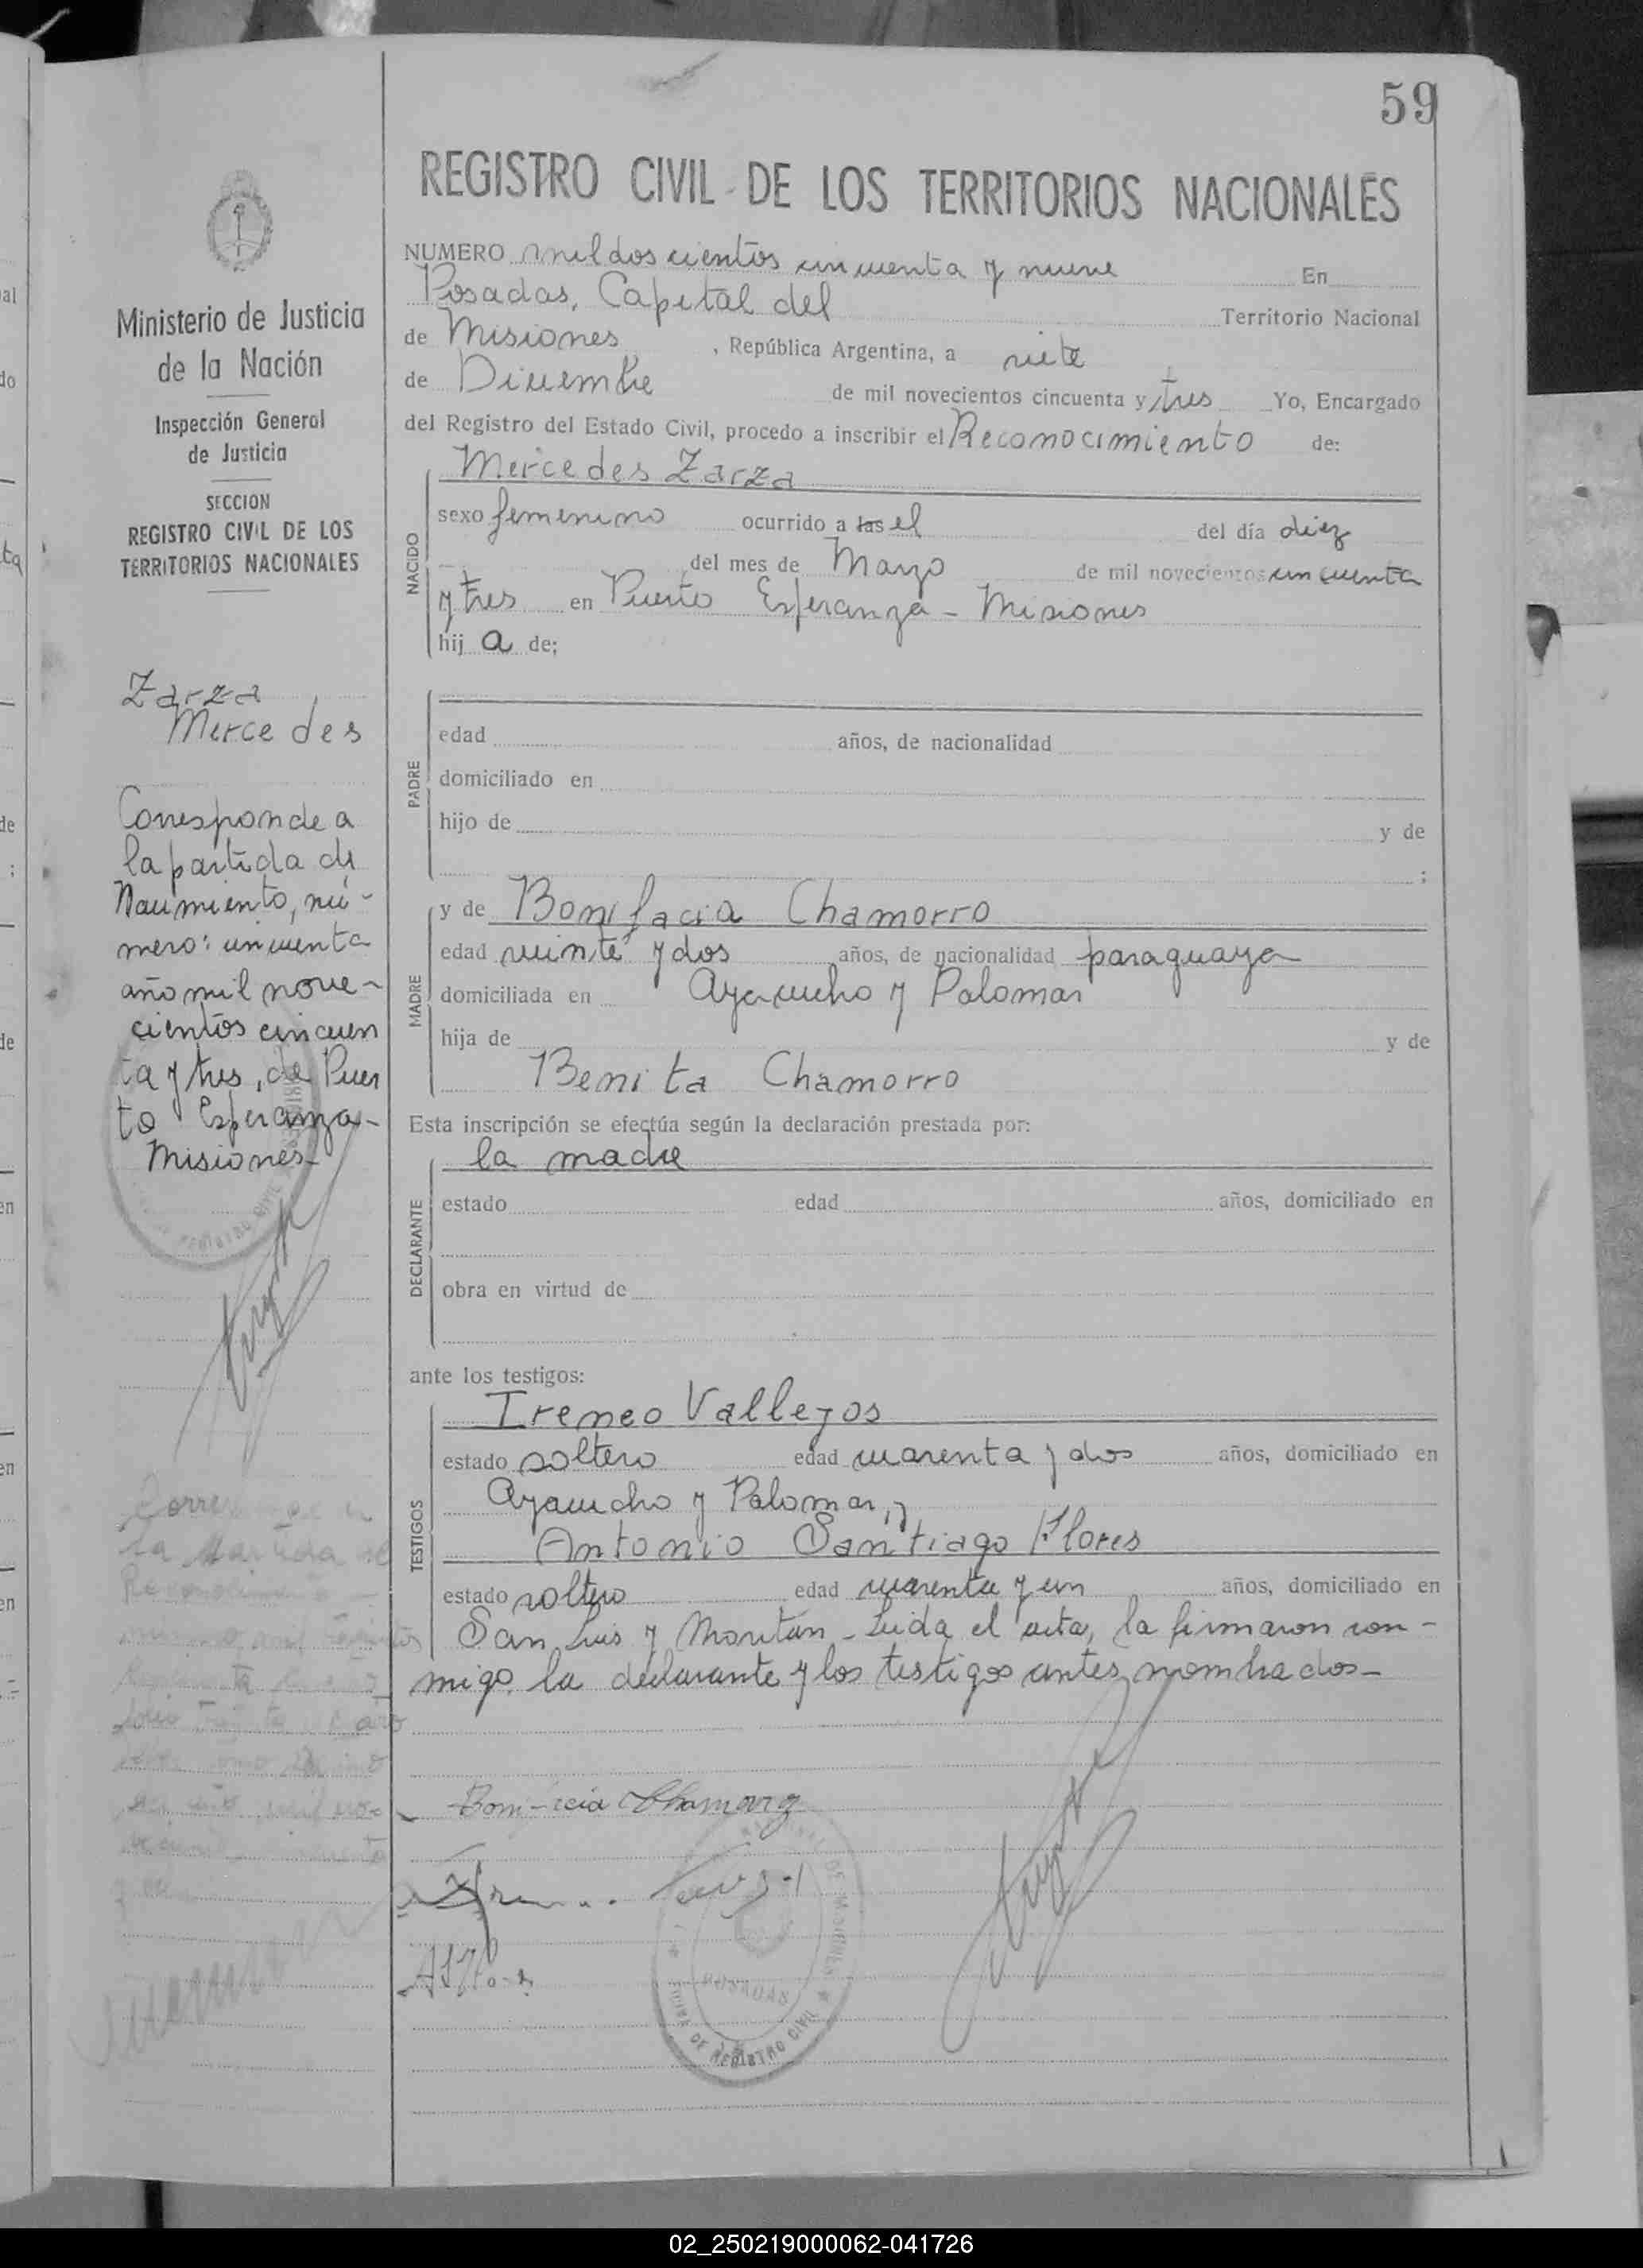 59
REGISTRO CIVIL DE LOS TERRITORIOS NACIONALES
NUMERO mil doscientos cincuenta y nueve En
Posadas, Capital del Territorio Nacional
de Misiones, República Argentina, a siete
de Diciembre de mil novecientos cincuenta y tres Yo, Encargado
del Registro del Estado Civil, procedo a inscribir el Reconocimiento de:
Mercedes Zarza
NACIDO
sexo femenino ocurrido a las el del día diez
del mes de Marzo de mil novecientos cincuenta
y tres en Puerto Esperanza - Misiones
hij a de;
PADRE
edad años, de nacionalidad
domiciliado en
hijo de y de
;
MADRE
y de Bonifacia Chamorro
edad veinte y dos años, de nacionalidad paraguaya
domiciliada en Ayacucho y Palomar
hija de y de
Benita Chamorro
Esta inscripción se efectúa según la declaración prestada por:
la madre
DECLARANTE
estado edad años, domiciliado en
obra en virtud de
ante los testigos:
TESTIGOS
Ireneo Vallejos
estado soltero edad cuarenta y dos años, domiciliado en
Ayacucho y Palomar, y
Antonio Santiago Flores
estado soltero edad cuarenta y un años, domiciliado en
San Luis y Moritán - Leida el acta, la firmaron con-
migo la declarante y los testigos antes nombrados-
Chamorro
POSADAS
DE REGISTRO CIVIL
Ministerio de Justicia
de la Nación
Inspección General
de Justicia
SECCION
REGISTRO CIVIL DE LOS
TERRITORIOS NACIONALES
Zarza
Mercedes
Corresponde a
la partida de
Nacimiento, nú-
mero: cincuenta
año mil nove-
cientos cincuen
ta y tres, de Puer
to Esperanza-
Misiones-
REGISTRO CIVIL
02_250219000062-041726